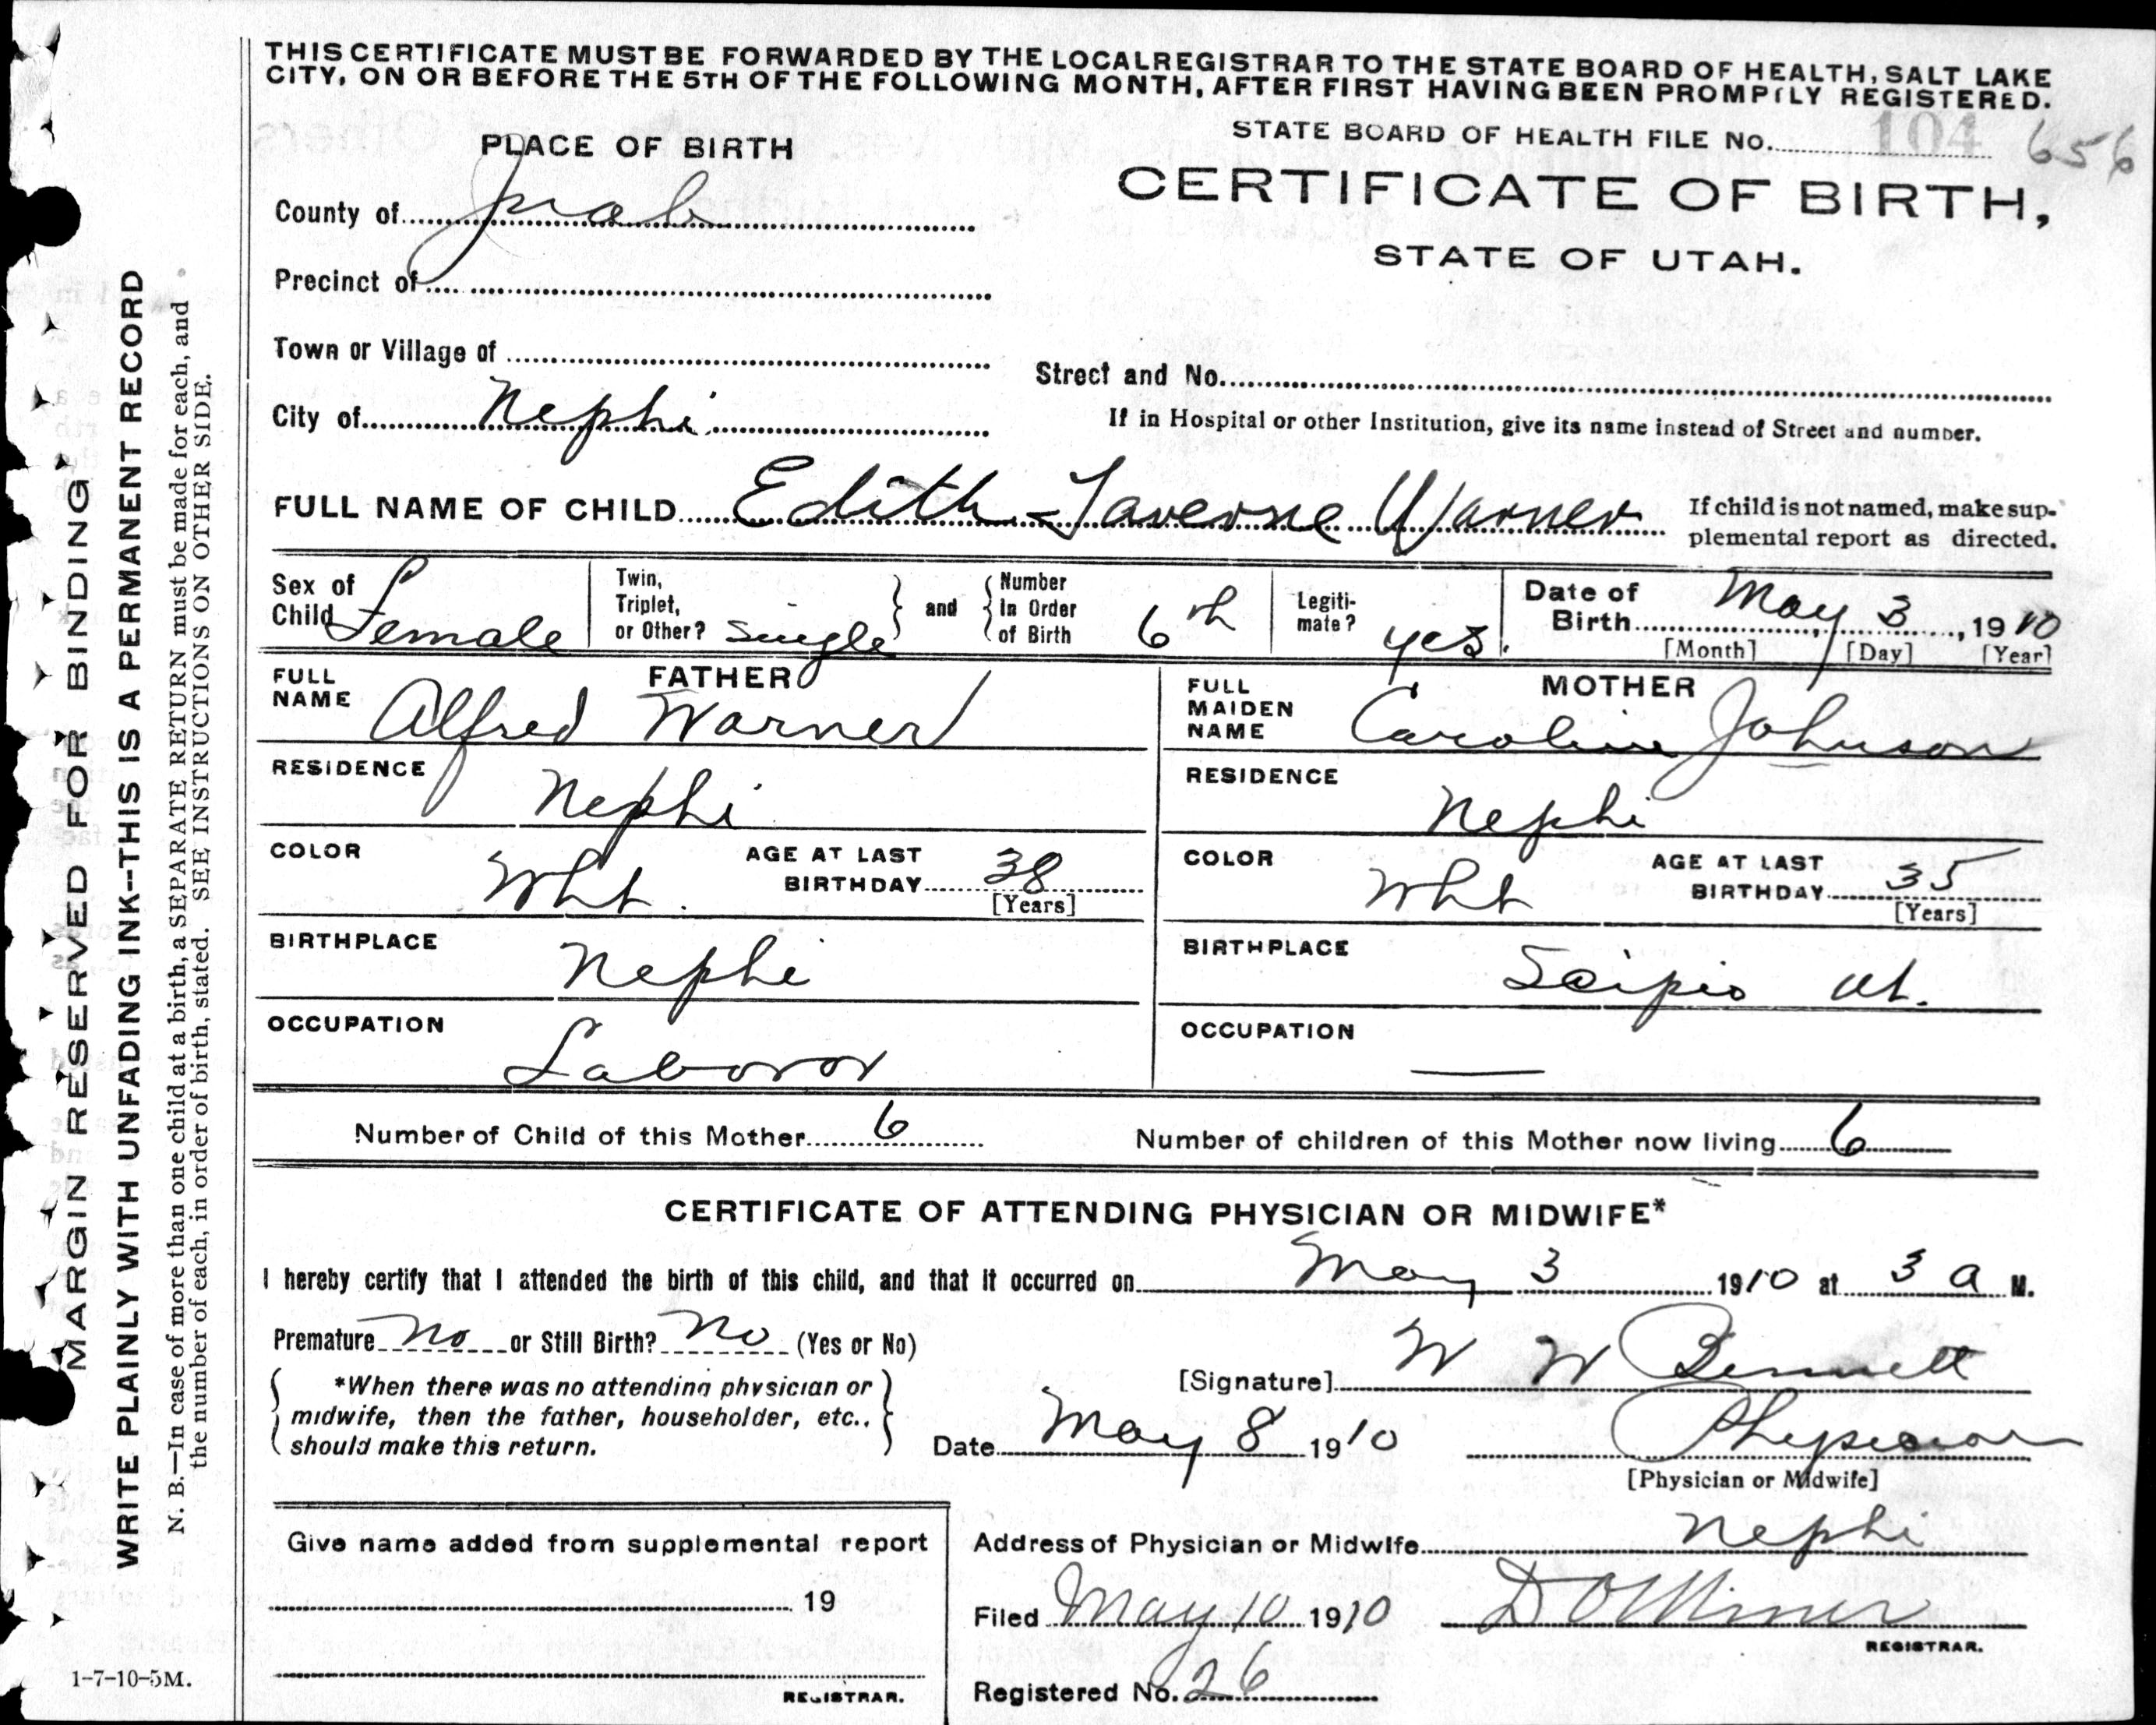 THIS CERTIFICATE MUST BE FORWARDED BY THE LOCAL REGISTRAR TO THE STATE BOARD OF HEALTH, SALT LAKE
CITY, ON OR BEFORE THE 5TH OF THE FOLLOWING MONTH, AFTER FIRST HAVING BEEN PROMPTLY REGISTERED.
PLACE OF BIRTH
STATE BOARD OF HEALTH FILE No. 104 656
CERTIFICATE OF BIRTH,
STATE OF UTAH.
County of Juab
Precinct of
Town or Village of
Street and No.
City of Nephi
If in Hospital or other Institution, give its name instead of Street and number.
FULL NAME OF CHILD Edith Laverne Warner
If child is not named, make sup-
plemental report as directed.
Sex of Child Female
Twin, Triplet, or Other? Single
and
Number In Order of Birth 6th
Legiti-mate? yes.
Date of Birth May 3, 1910
[Month] [Day] [Year]
FATHER
FULL NAME Alfred Warner
RESIDENCE Nephi
COLOR Wht.
AGE AT LAST BIRTHDAY 38
[Years]
BIRTHPLACE Nephi
OCCUPATION Laboror
MOTHER
FULL MAIDEN NAME Caroline Johnson
RESIDENCE Nephi
COLOR Wht
AGE AT LAST BIRTHDAY 35
[Years]
BIRTHPLACE Scipio Ut.
OCCUPATION —
Number of Child of this Mother 6
Number of children of this Mother now living 6
CERTIFICATE OF ATTENDING PHYSICIAN OR MIDWIFE*
I hereby certify that I attended the birth of this child, and that it occurred on May 3 1910 at 3 a M.
Premature no or Still Birth? no (Yes or No)
*When there was no attending physician or
midwife, then the father, householder, etc.,
should make this return.
[Signature] W W Bennett
Date May 8 1910
Physician
[Physician or Midwife]
Give name added from supplemental report
19
REGISTRAR.
Address of Physician or Midwife Nephi
Filed May 10 1910 D O Miner
REGISTRAR.
Registered No. 26
1-7-10-5M.
MARGIN RESERVED FOR BINDING
WRITE PLAINLY WITH UNFADING INK--THIS IS A PERMANENT RECORD
N. B.—In case of more than one child at a birth, a SEPARATE RETURN must be made for each, and
the number of each, in order of birth, stated. SEE INSTRUCTIONS ON OTHER SIDE.